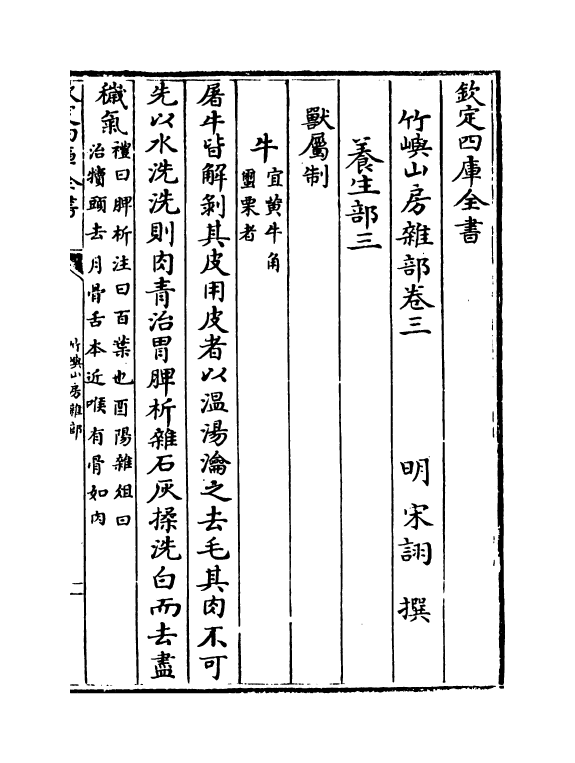 欽定四庫全書
竹嶼山房雜部卷三
明 宋詡 撰
養生部三
獸屬制
牛
宜黄牛角
璽栗者
屠牛皆解剝其皮用皮者以温湯瀹之去毛其肉不可
先以水洗洗則肉青治胃脾析雜石灰揉洗白而去盡
穢氣
禮曰脾析注曰百葉也酉陽雜俎曰
治犢頭去月骨舌本近喉有骨如肉
竹嶼山房雜部
二